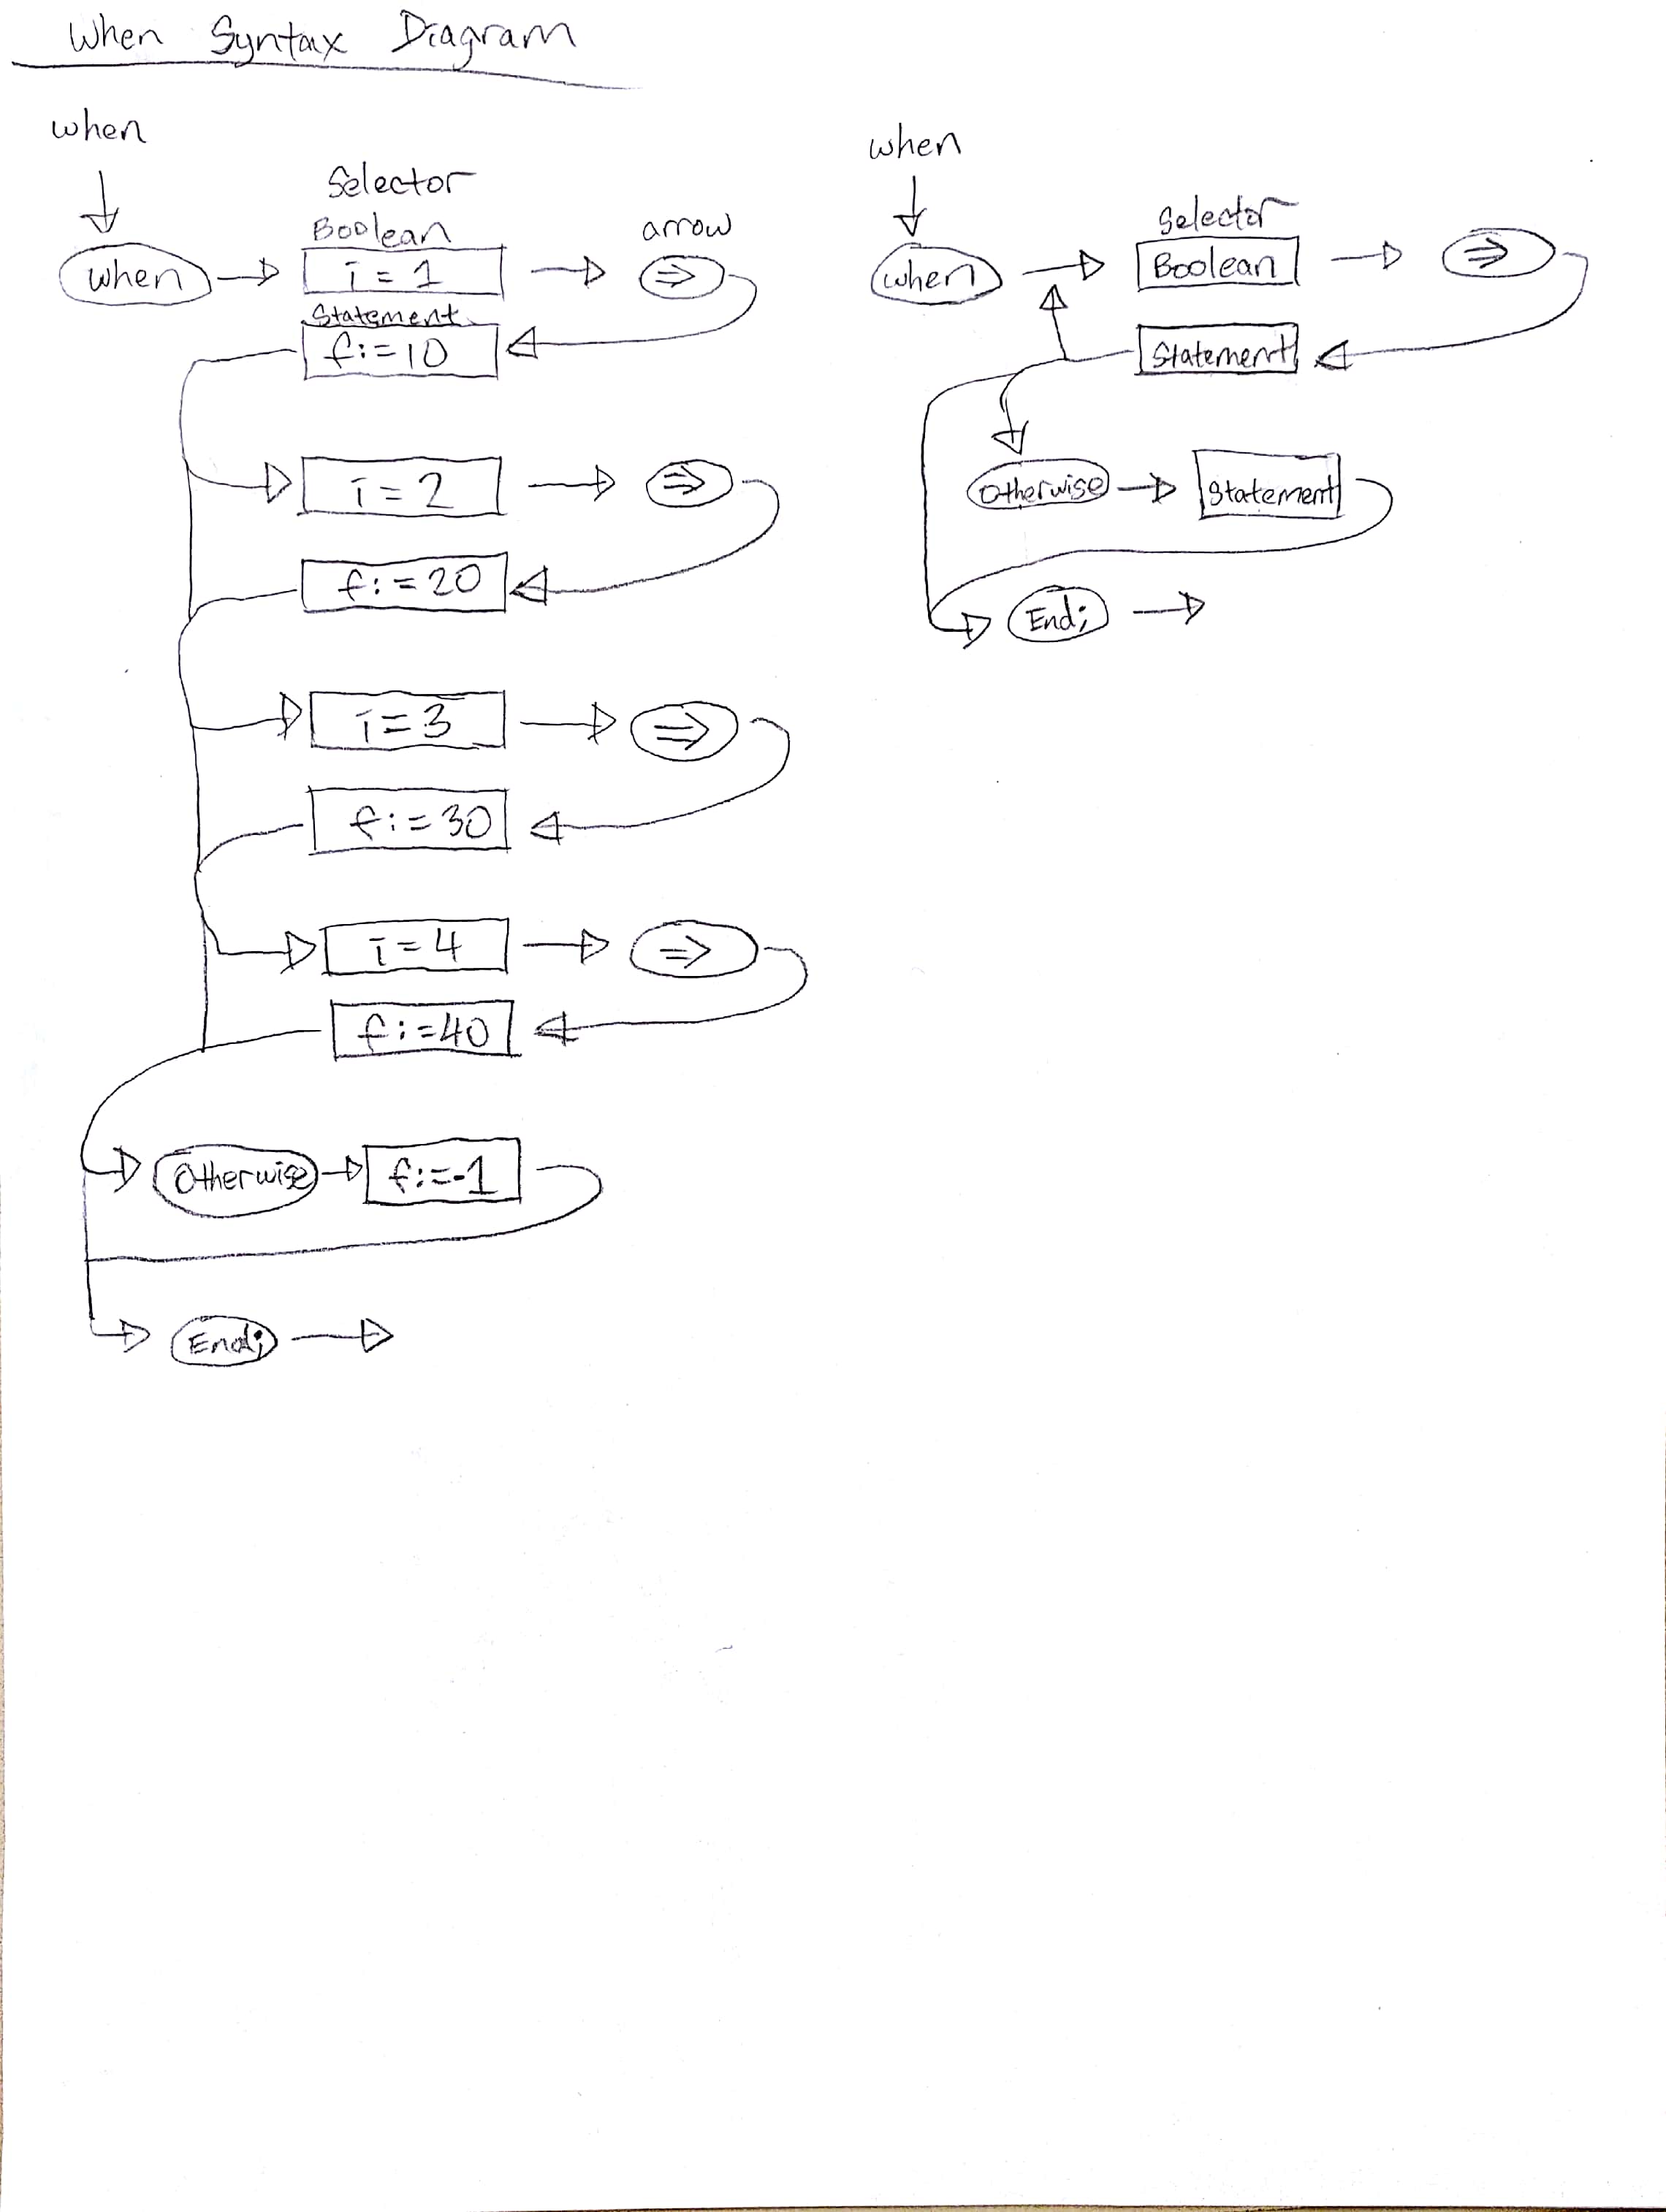 When Syntax Diagram
when
Selector
Boolean
arrow
when
i = 1
⇒
Statement
f:=10
i = 2
⇒
f:=20
i=3
⇒
f:=30
i=4
⇒
f:=40
Otherwise
f:=-1
End;
when
Selector
when
Boolean
⇒
Statement
Otherwise
Statement
End;